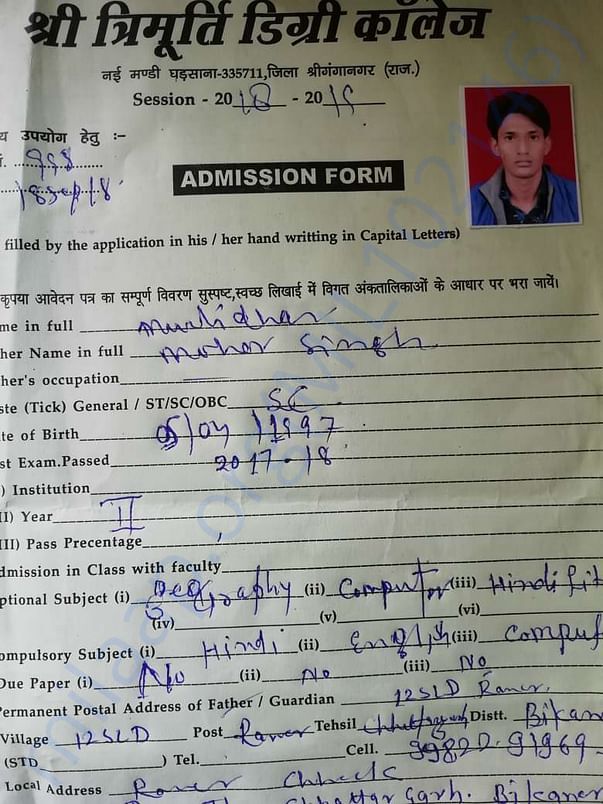 श्री त्रिमूर्ति डिग्री कॉलेज
नई मण्डी घड़साना-335711,जिला श्रीगंगानगर (राज.)
Session - 2018 - 2019
य उपयोग हेतु :-
ADMISSION FORM
filled by the application in his / her hand writting in Capital Letters)
कृपया आवेदन पत्र का सम्पूर्ण विवरण सुस्पष्ट,स्वच्छ लिखाई में विगत अंकतालिकाओं के आधार पर भरा जायें।
me in full Murlidhar
her Name in full Mohar Singh
her's occupation
ste (Tick) General / ST/SC/OBC SC
te of Birth 05/07/1997
st Exam.Passed 2017-18
) Institution
II) Year II
III) Pass Precentage
dmission in Class with faculty
ptional Subject (i) Geography (ii) Computer (iii) Hindi Lit
(iv) (v) (vi)
ompulsory Subject (i) Hindi (ii) English (iii) Comput
Due Paper (i) No (ii) No (iii) No
Permanent Postal Address of Father / Guardian 12SLD
Village 12SLD Post Tehsil Distt. Bikan
(STD ) Tel. Cell.
Local Address
Garh. Bikaner